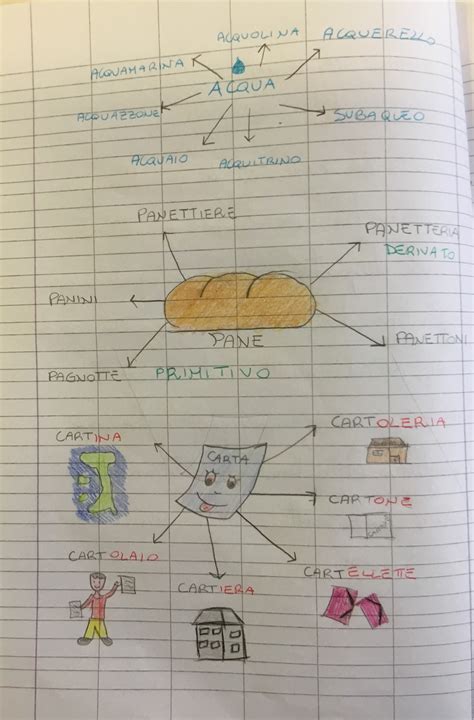 ACQUOLINA
ACQUERELLO
ACQUAMARINA
ACQUA
ACQUAZZONE
SUBAQUEO
ACQUAIO
ACQUITRINO
PANETTIERE
PANETTERIA
DERIVATO
PANINI
PANE
PANETTONI
PAGNOTTE
PRIMITIVO
CARTOLERIA
CARTINA
CARTA
CARTONE
CARTOLAIO
CARTIERA
CARTELLETTE